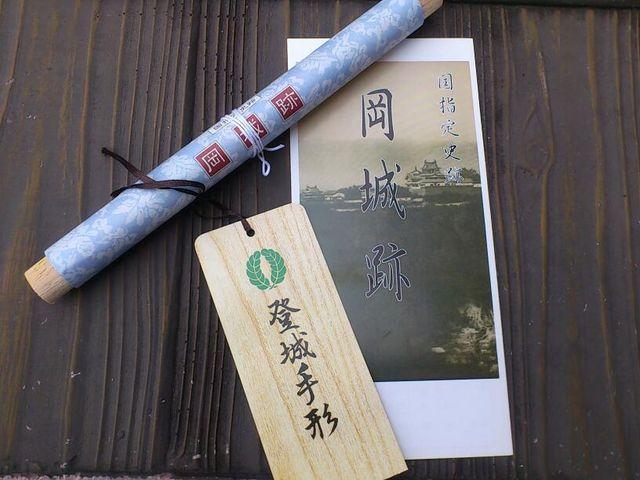 岡城跡
国指定史跡
岡城跡
登城手形